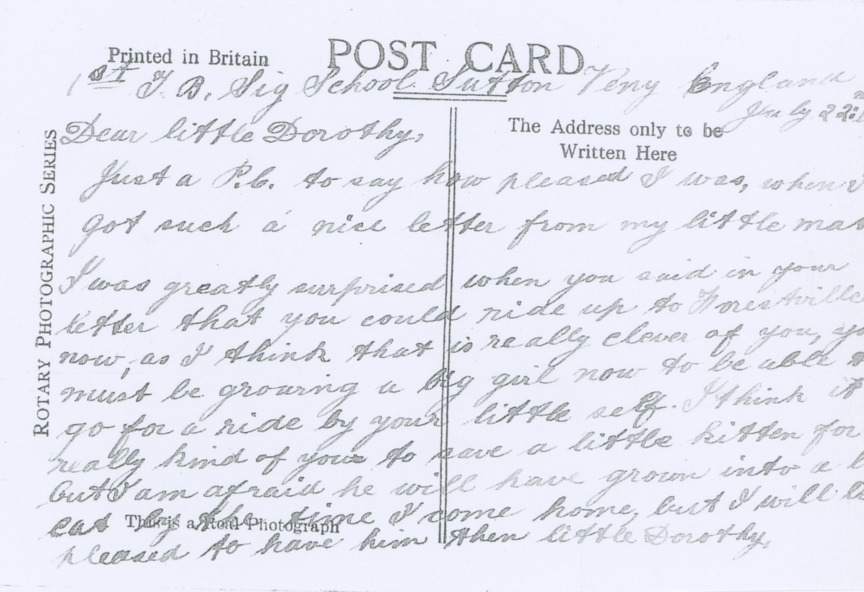 Printed in Britain
POST CARD
1st T. B. Sig School Sutton Veny England
July 22
Dear little Dorothy,
The Address only to be
Written Here
Just a P.C. to say how pleased I was, when I
got such a nice letter from my little
I was greatly surprised when you said in your
letter that you could ride up to Forestville
now, as I think that is really clever of you,
must be growing a big girl now to be able
go for a ride by your little self. I think it
really kind of you to save a little kitten for
but I am afraid he will have grown into a
cat by the time I come home, but I will
This is a Real Photograph
pleased to have him then little Dorothy,
ROTARY PHOTOGRAPHIC SERIES